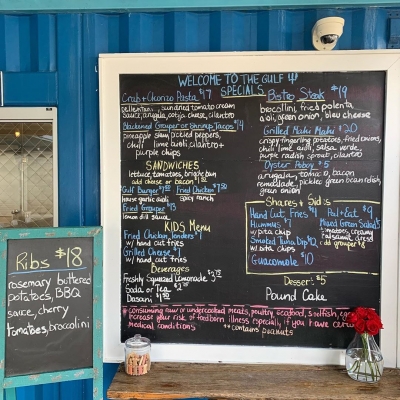 WELCOME TO THE GULF
SPECIALS
Crab + Chorizo Pasta $17
pellentani, sundried tomato cream
sauce, arugula, cotija cheese, cilantro
Blackened Grouper or Shrimp Tacos $14
pineapple slaw, pickled peppers,
chili lime aioli, cilantro +
purple chips
SANDWICHES
lettuce, tomatoes, bright bun
add cheese or bacon $1
Gulf Burger
Fried Chicken
house garlic aioli
spicy ranch
Fried Grouper $13
lemon dill sauce
KIDS MENU
Fried Chicken Tenders $7
w/ hand cut fries
Grilled Cheese $7
w/ hand cut fries
Beverages
Freshly Squeezed Lemonade
Soda or Tea
Dasani
Bistro Steak $19
broccolini, fried polenta
aioli, green onion, bleu cheese
Grilled Mahi Mahi $20
crispy fingerling potatoes, fried onions,
chili lime aioli, salsa verde,
purple radish sprout, cilantro
Oyster Poboy $15
arugula, tomato, bacon
remoulade, pickled green bean relish,
green onion
Shares + Sides
Hand Cut Fries $4
Hummus $7
w/ pita chips
Smoked Tuna Dip $12
w/ pita chips
Guacamole $10
$9
Mixed Green Salad
tomatoes, creamy
balsamic dressing
add grouper
Dessert $5
Pound Cake
* consuming raw or undercooked meats, poultry, seafood, shellfish, eggs
increase your risk of foodborn illness especially if you have certain
medical conditions
** contains peanuts
Ribs $18
rosemary buttered
potatoes, BBQ
sauce, cherry
tomatoes, broccolini